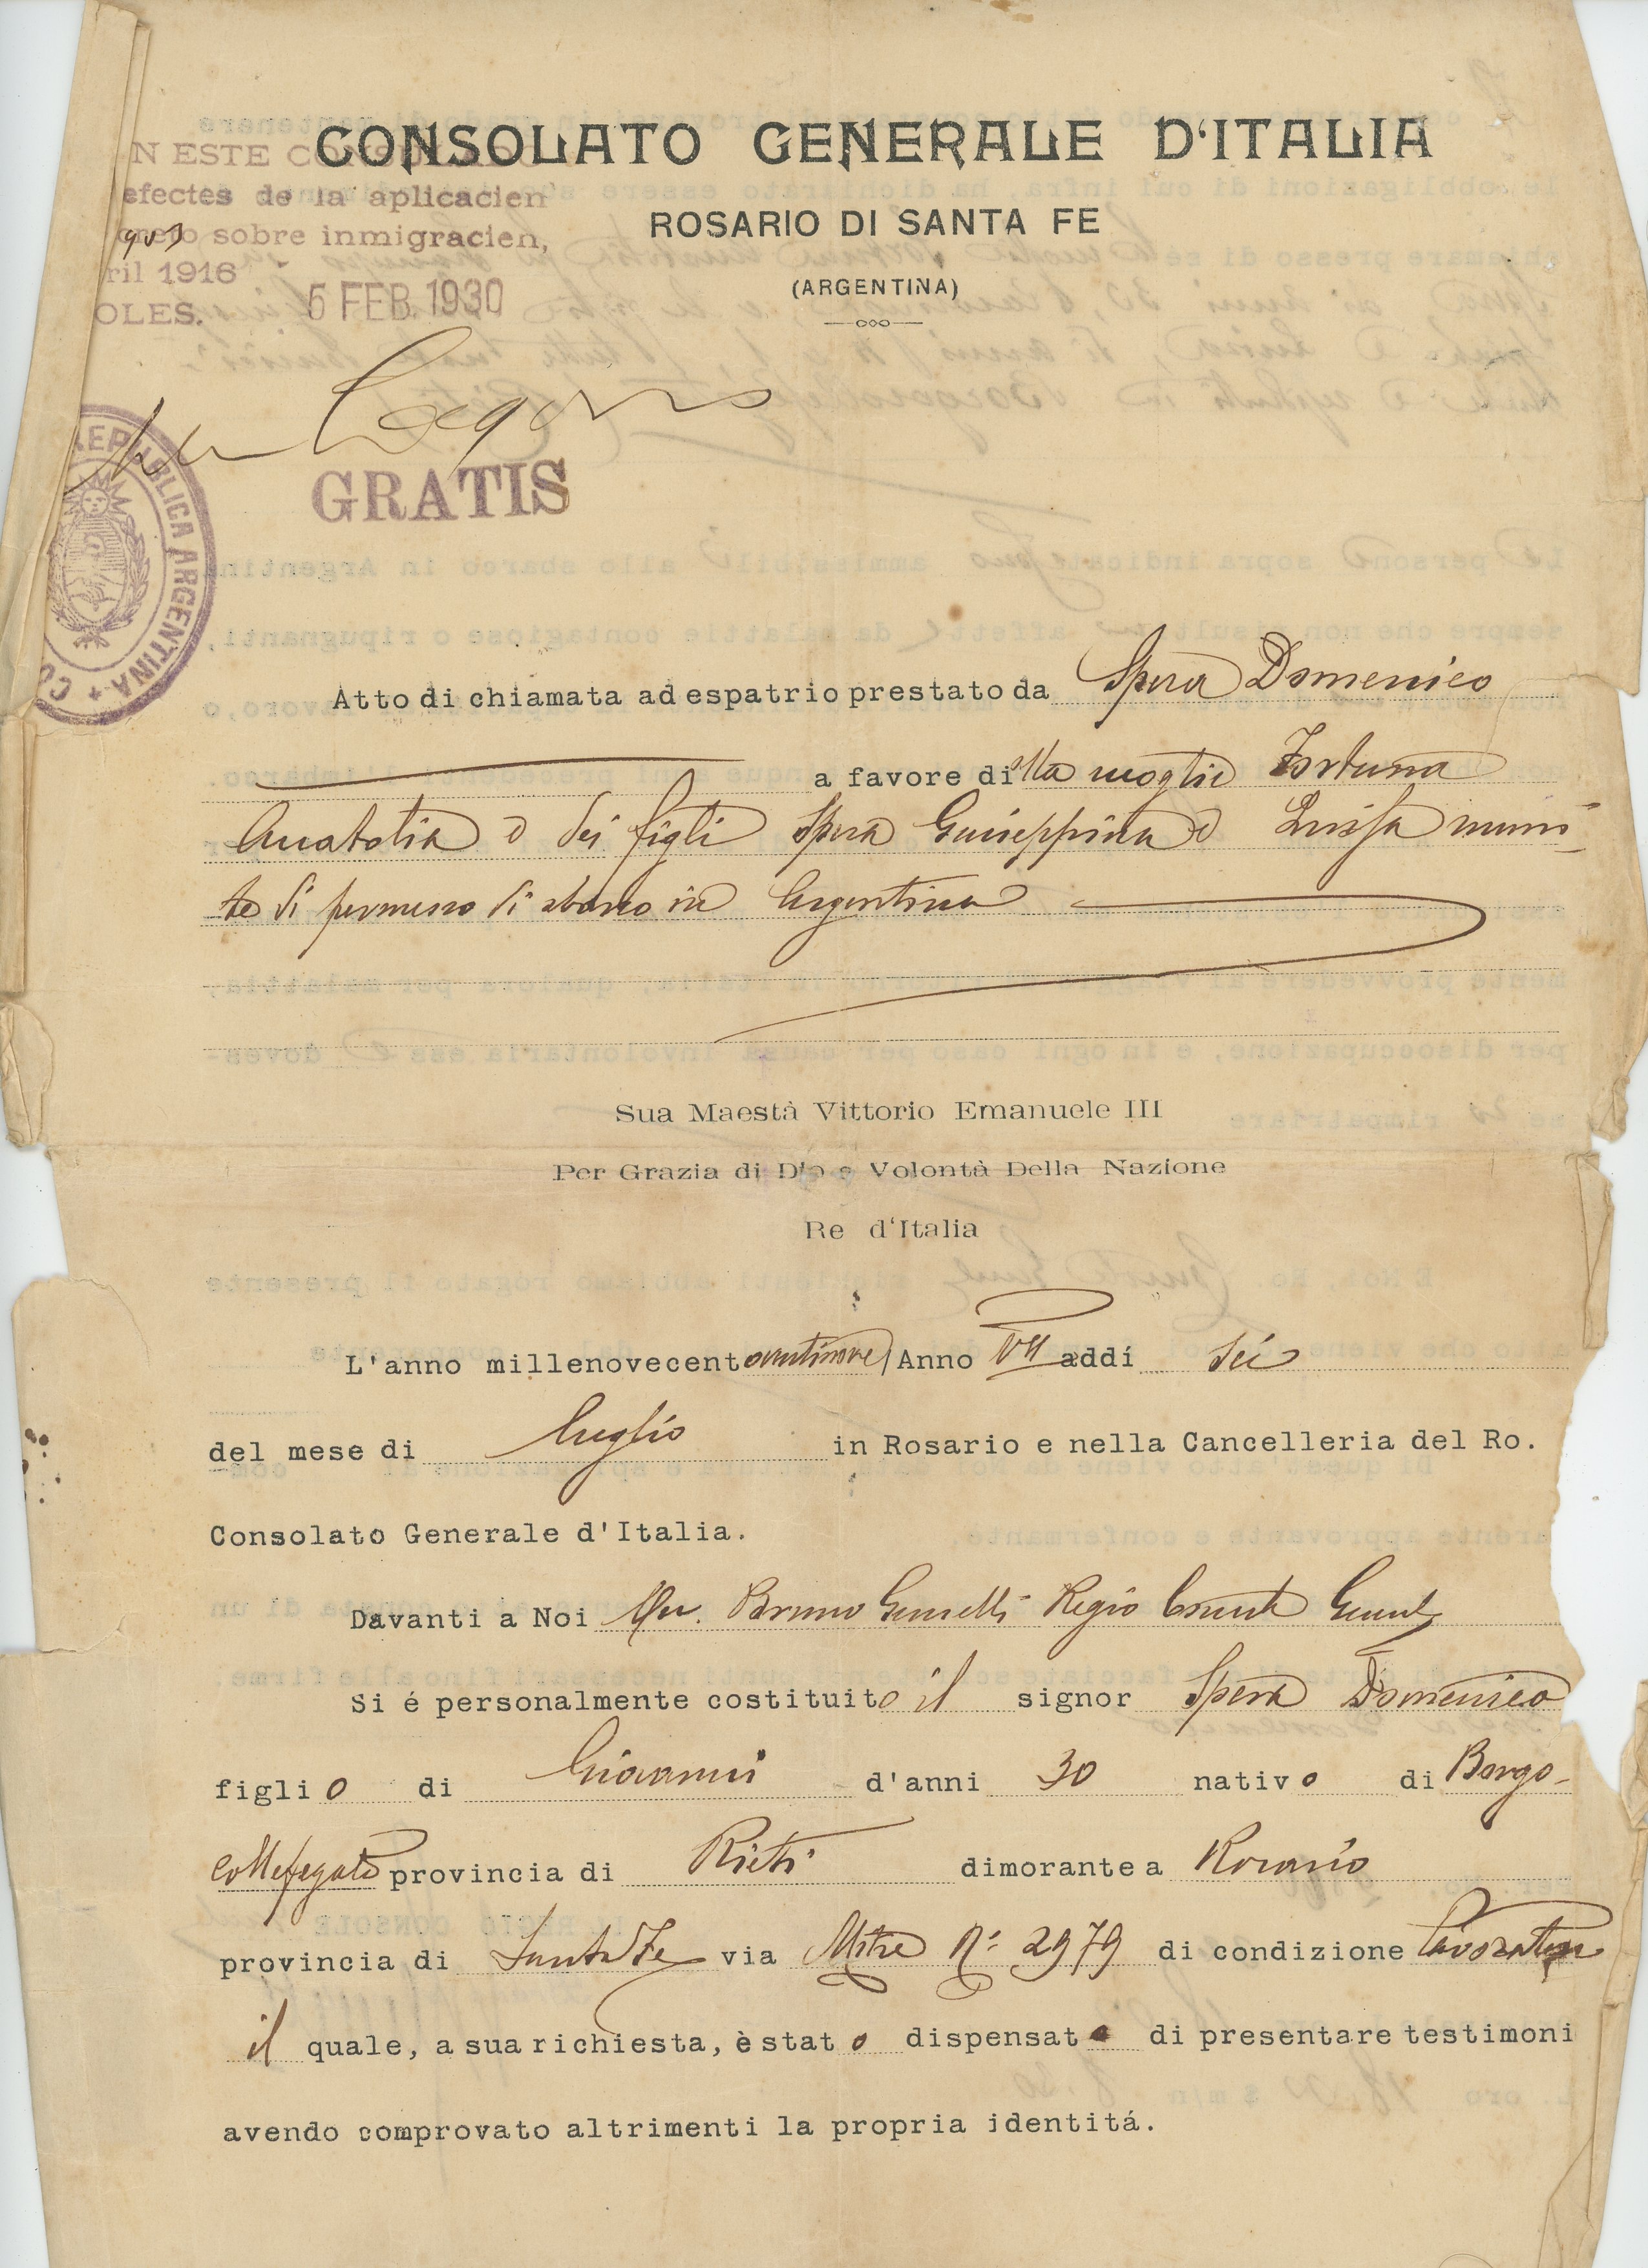 CONSOLATO GENERALE D'ITALIA
ROSARIO DI SANTA FE
(ARGENTINA)
N ESTE
efectes de la aplicacien
sobre inmigracien,
ril 1916
OLES.
5 FEB. 1930
GRATIS
REPUBLICA ARGENTINA
Atto di chiamata ad espatrio prestato da Spera Domenico
a favore di alla moglie Fortuna
Anatolia e dei figli Spera Giuseppina e Luisa muni-
te di permesso di sbarco in Argentina
Sua Maestà Vittorio Emanuele III
Per Grazia di Dio e Volontà Della Nazione
Re d'Italia
L'anno millenovecentoventinove Anno VII addí sei
del mese di luglio in Rosario e nella Cancelleria del Ro.
Consolato Generale d'Italia.
Davanti a Noi Bruno Gemelli Regio Console Generale
Si é personalmente costituito il signor Spera Domenico
figlio di Giovanni d'anni 30 nativo di Borgo-
collefegato provincia di Rieti dimorante a Rosario
provincia di Santa Fe via Mitre N.º 2979 di condizione lavoratore
il quale, a sua richiesta, è stato dispensato di presentare testimoni
avendo comprovato altrimenti la propria identitá.